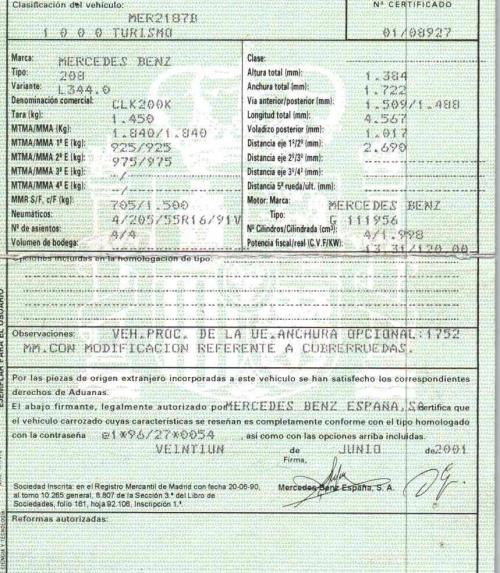 Clasificación del vehículo:
Nº CERTIFICADO
MER2187B
1 0 0 0 TURISMO
01/08927
Marca: MERCEDES BENZ
Tipo: 208
Variante: L344.0
Denominación comercial: CLK200K
Tara (kg): 1.450
MTMA/MMA (Kg): 1.840/1.840
MTMA/MMA 1º E (kg): 925/925
MTMA/MMA 2º E (kg): 975/975
MTMA/MMA 3º E (kg): -/
MTMA/MMA 4º E (kg): -/
MMR S/F, c/F (kg): 705/1.500
Neumáticos: 4/205/55R16/91V
Nº de asientos: 4/4
Volumen de bodega:
Clase:
Altura total (mm): 1.384
Anchura total (mm): 1.722
Vía anterior/posterior (mm): 1.509/1.488
Longitud total (mm): 4.567
Voladizo posterior (mm): 1.017
Distancia eje 1º/2º (mm): 2.690
Distancia eje 2º/3º (mm):
Distancia eje 3º/4º (mm):
Distancia 5ª rueda/ult. (mm):
Motor: Marca: MERCEDES BENZ
Tipo: G 111956
Nº Cilindros/Cilindrada (cm³): 4/1.998
Potencia fiscal/real (C.V.F/KW): 13.31/120.00
Opciones incluidas en la homologación de tipo:
Observaciones: VEH.PROC. DE LA UE.ANCHURA OPCIONAL:1752
MM.CON MODIFICACION REFERENTE A CUBRERRUEDAS.
Por las piezas de origen extranjero incorporadas a este vehículo se han satisfecho los correspondientes
derechos de Aduanas.
El abajo firmante, legalmente autorizado por MERCEDES BENZ ESPAÑA, SA certifica que
el vehículo carrozado cuyas características se reseñan es completamente conforme con el tipo homologado
con la contraseña e1*96/27*0054 , así como con las opciones arriba incluidas.
VEINTIUN de JUNIO de 2001
Firma,
Mercedes-Benz España, S. A.
Sociedad Inscrita: en el Registro Mercantil de Madrid con fecha 20-06-90,
al tomo 10.265 general, 8.807 de la Sección 3.ª del Libro de
Sociedades, folio 161, hoja 92.106, Inscripción 1.ª
Reformas autorizadas:
EJEMPLAR PARA EL USUARIO